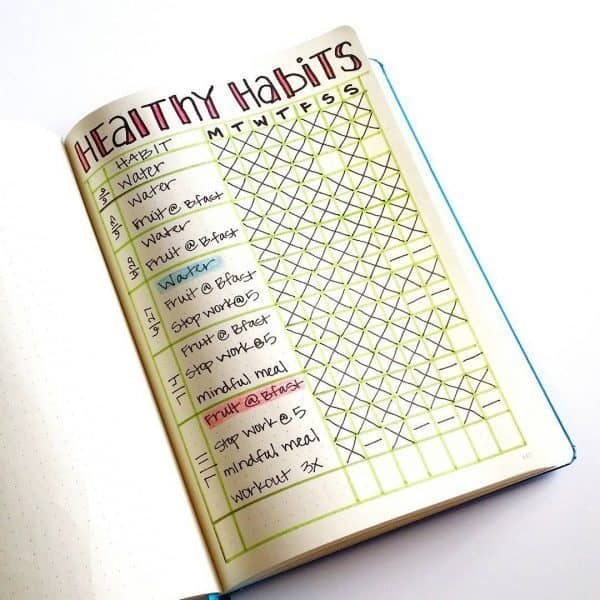 HEALTHY HABITS
HABIT M T W T F S S
6/6 Water
Water
6/13 Fruit @ B·fast
Water
6/20 Fruit @ B·fast
Water
Fruit @ B·fast
6/27 Stop Work @ 5
Fruit @ B·fast
Stop work @ 5
7/4 mindful meal
Fruit @ B·fast
Stop Work @ 5
7/11 mindful meal
workout 3x